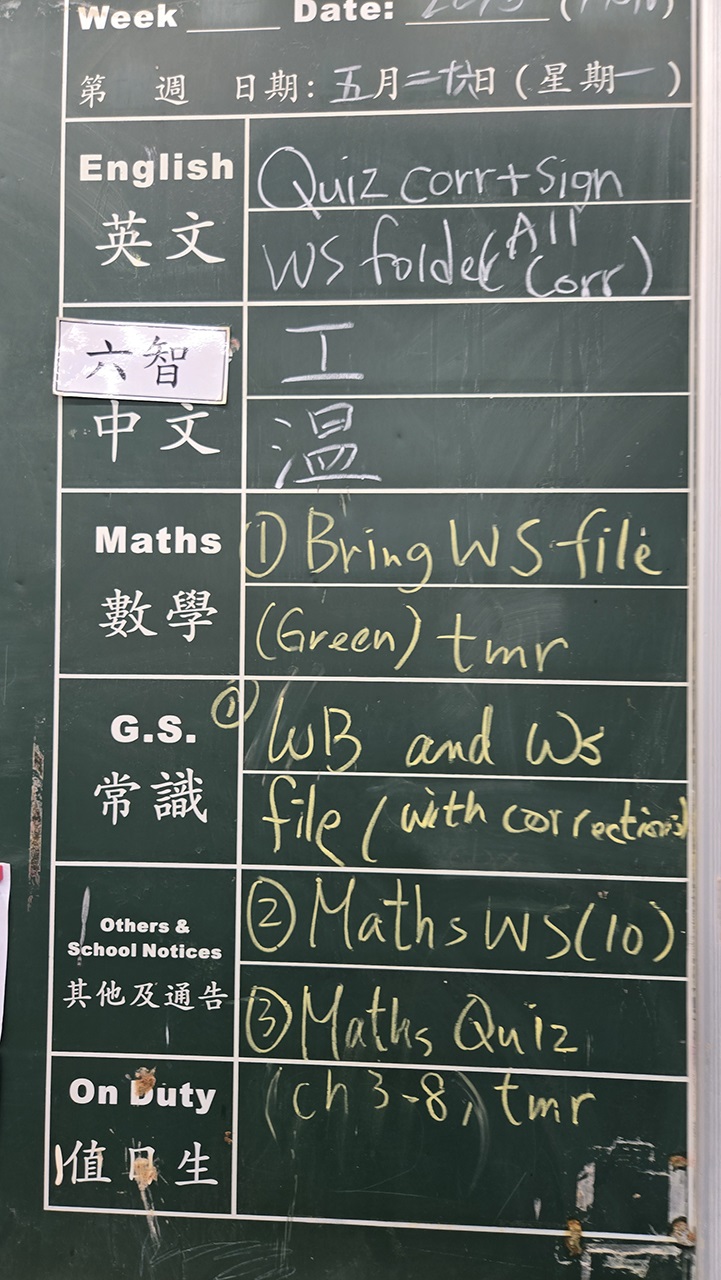 Week Date:
第 週 日期: 五月二十六日 (星期一)
English Quiz corr + sign
英文 WS folder (All Corr)
六智 工
中文 温
Maths ① Bring WS file
數學 (Green) tmr
G.S. ① WB and WS
常識 file (with corrections)
Others & ② Maths WS (10)
School Notices
其他及通告 ③ Maths Quiz
On Duty (ch 3-8) tmr
值日生